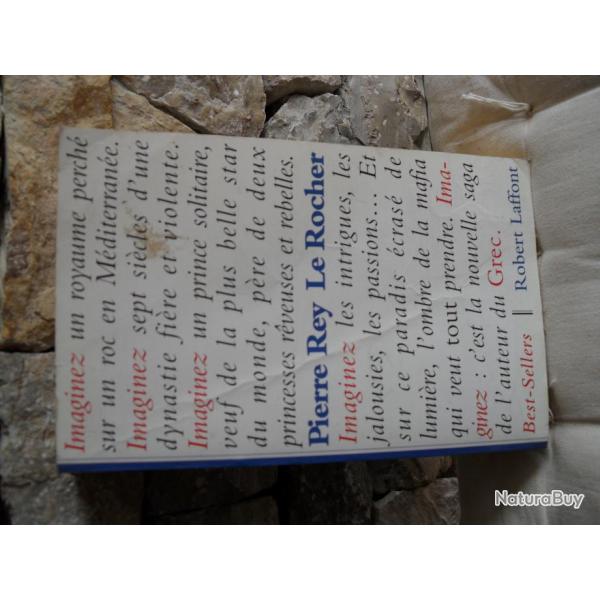 Imaginez un royaume perché
sur un roc en Méditerranée.
Imaginez sept siècles d'une
dynastie fière et violente.
Imaginez un prince solitaire,
veuf de la plus belle star
du monde, père de deux
princesses rêveuses et rebelles.
Pierre Rey Le Rocher
Imaginez les intrigues, les
jalousies, les passions... Et
sur ce paradis écrasé de
lumière, l'ombre de la mafia
qui veut tout prendre. Ima-
ginez : c'est la nouvelle saga
de l'auteur du Grec.
Best-Sellers || Robert Laffont
NaturaBuy